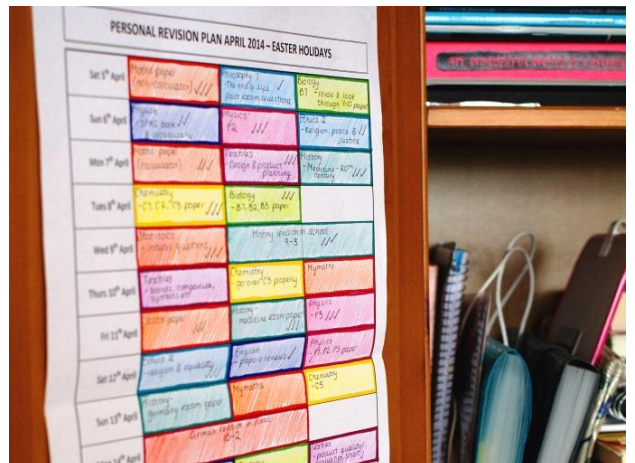 PERSONAL REVISION PLAN APRIL 2014 – EASTER HOLIDAYS
Sat 5th April
Maths paper
(non-calculator)
Philosophy 1
past exam questions
Biology
B7 - revise & look
through paper
Sun 6th April
Physics
P2
Ethics 2
- Religion, peace &
justice
Mon 7th April
Maths paper
(calculator)
Textiles
- Design & product
planning
History
- Medicine - 20th
century
Tues 8th April
Chemistry
- C1, C2, C3 paper
Biology
- B1, B2, B3 paper
Wed 9th April
Statistics
questions
History session in school
9-3
Thurs 10th April
Textiles
Chemistry
- go over C3 properly
Mymaths
Fri 11th April
Stats paper
History-
medicine exam paper
Physics
- P3
Sat 12th April
Ethics 2
- religion & equality
English
Physics
- P1, P2, P3 paper
Sun 13th April
History-
germany exam paper
Mymaths
Chemistry
- C5
German session in school
10-2
Textiles
- product quality